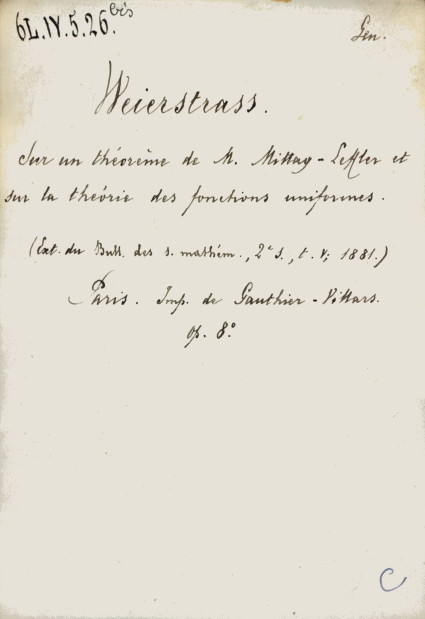 6L.IV.5.26.bis
Gen.
Weierstrass.
Sur un théorème de M. Mittag-Leffler et
sur la théorie des fonctions uniformes.
(Ext. du Bull. des s. mathém., 2e s., t. V; 1881.)
Paris. Imp. de Gauthier-Villars.
op. 8°
C